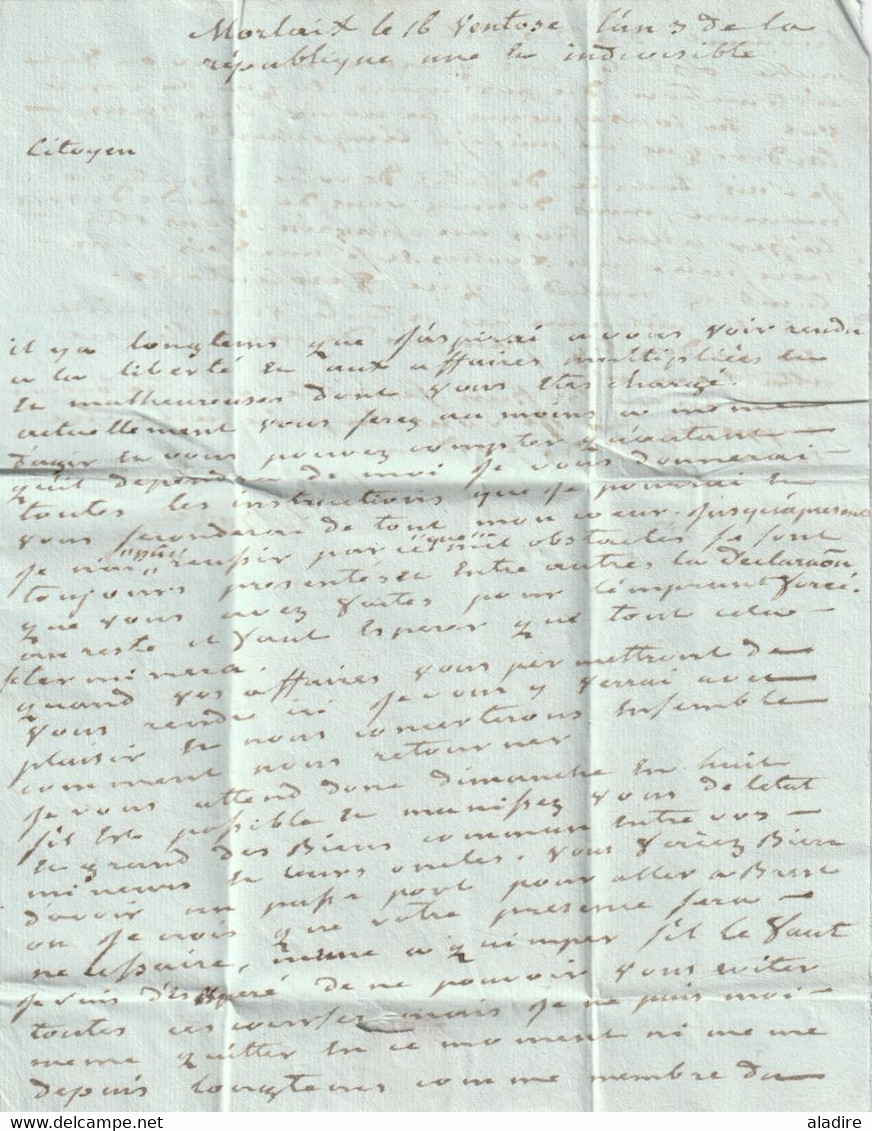 Morlaix le 16 Ventose l'an 3 de la
république une et indivisible
Citoyen
il y a longtems que j'aspirai a vous voir rendu
a la liberté et aux affaires multipliées et
et malheureuses dont vous etes chargé.
actuellement vous serez au moins a meme
d'agir et vous pouvez compter qu'autant
qu'il dependra de moi je vous donnerai
toutes les instructions que je pourrai et
vous seconderai de tout mon coeur. jusqu'apresent
je n'ai pu reussir parce que mil obstacles se sont
toujours presentés et entre autres la declaraõn
que vous avez faites pour l'emprunt forcé.
au reste il faut esperer que tout cela
se terminera
quand vos affaires vous permettront de
vous rendre ici je vous y verrai avec
plaisir et nous concerterons ensemble
comment nous retourner
je vous attend donc dimanche en huit
s'il est possible et munissez vous de l'etat
en grand des Biens commun entre vos
mineurs et leurs oncles. vous feriez Bien
d'avoir un passe port pour aller a Brest
ou je vois que votre presence sera
necessaire, meme a quimper s'il le faut
je suis desesperé de ne pouvoir vous eviter
toutes ces courses mais je ne puis moi
meme quitter en ce moment ni meme
depuis longtems comme membre du
aladire